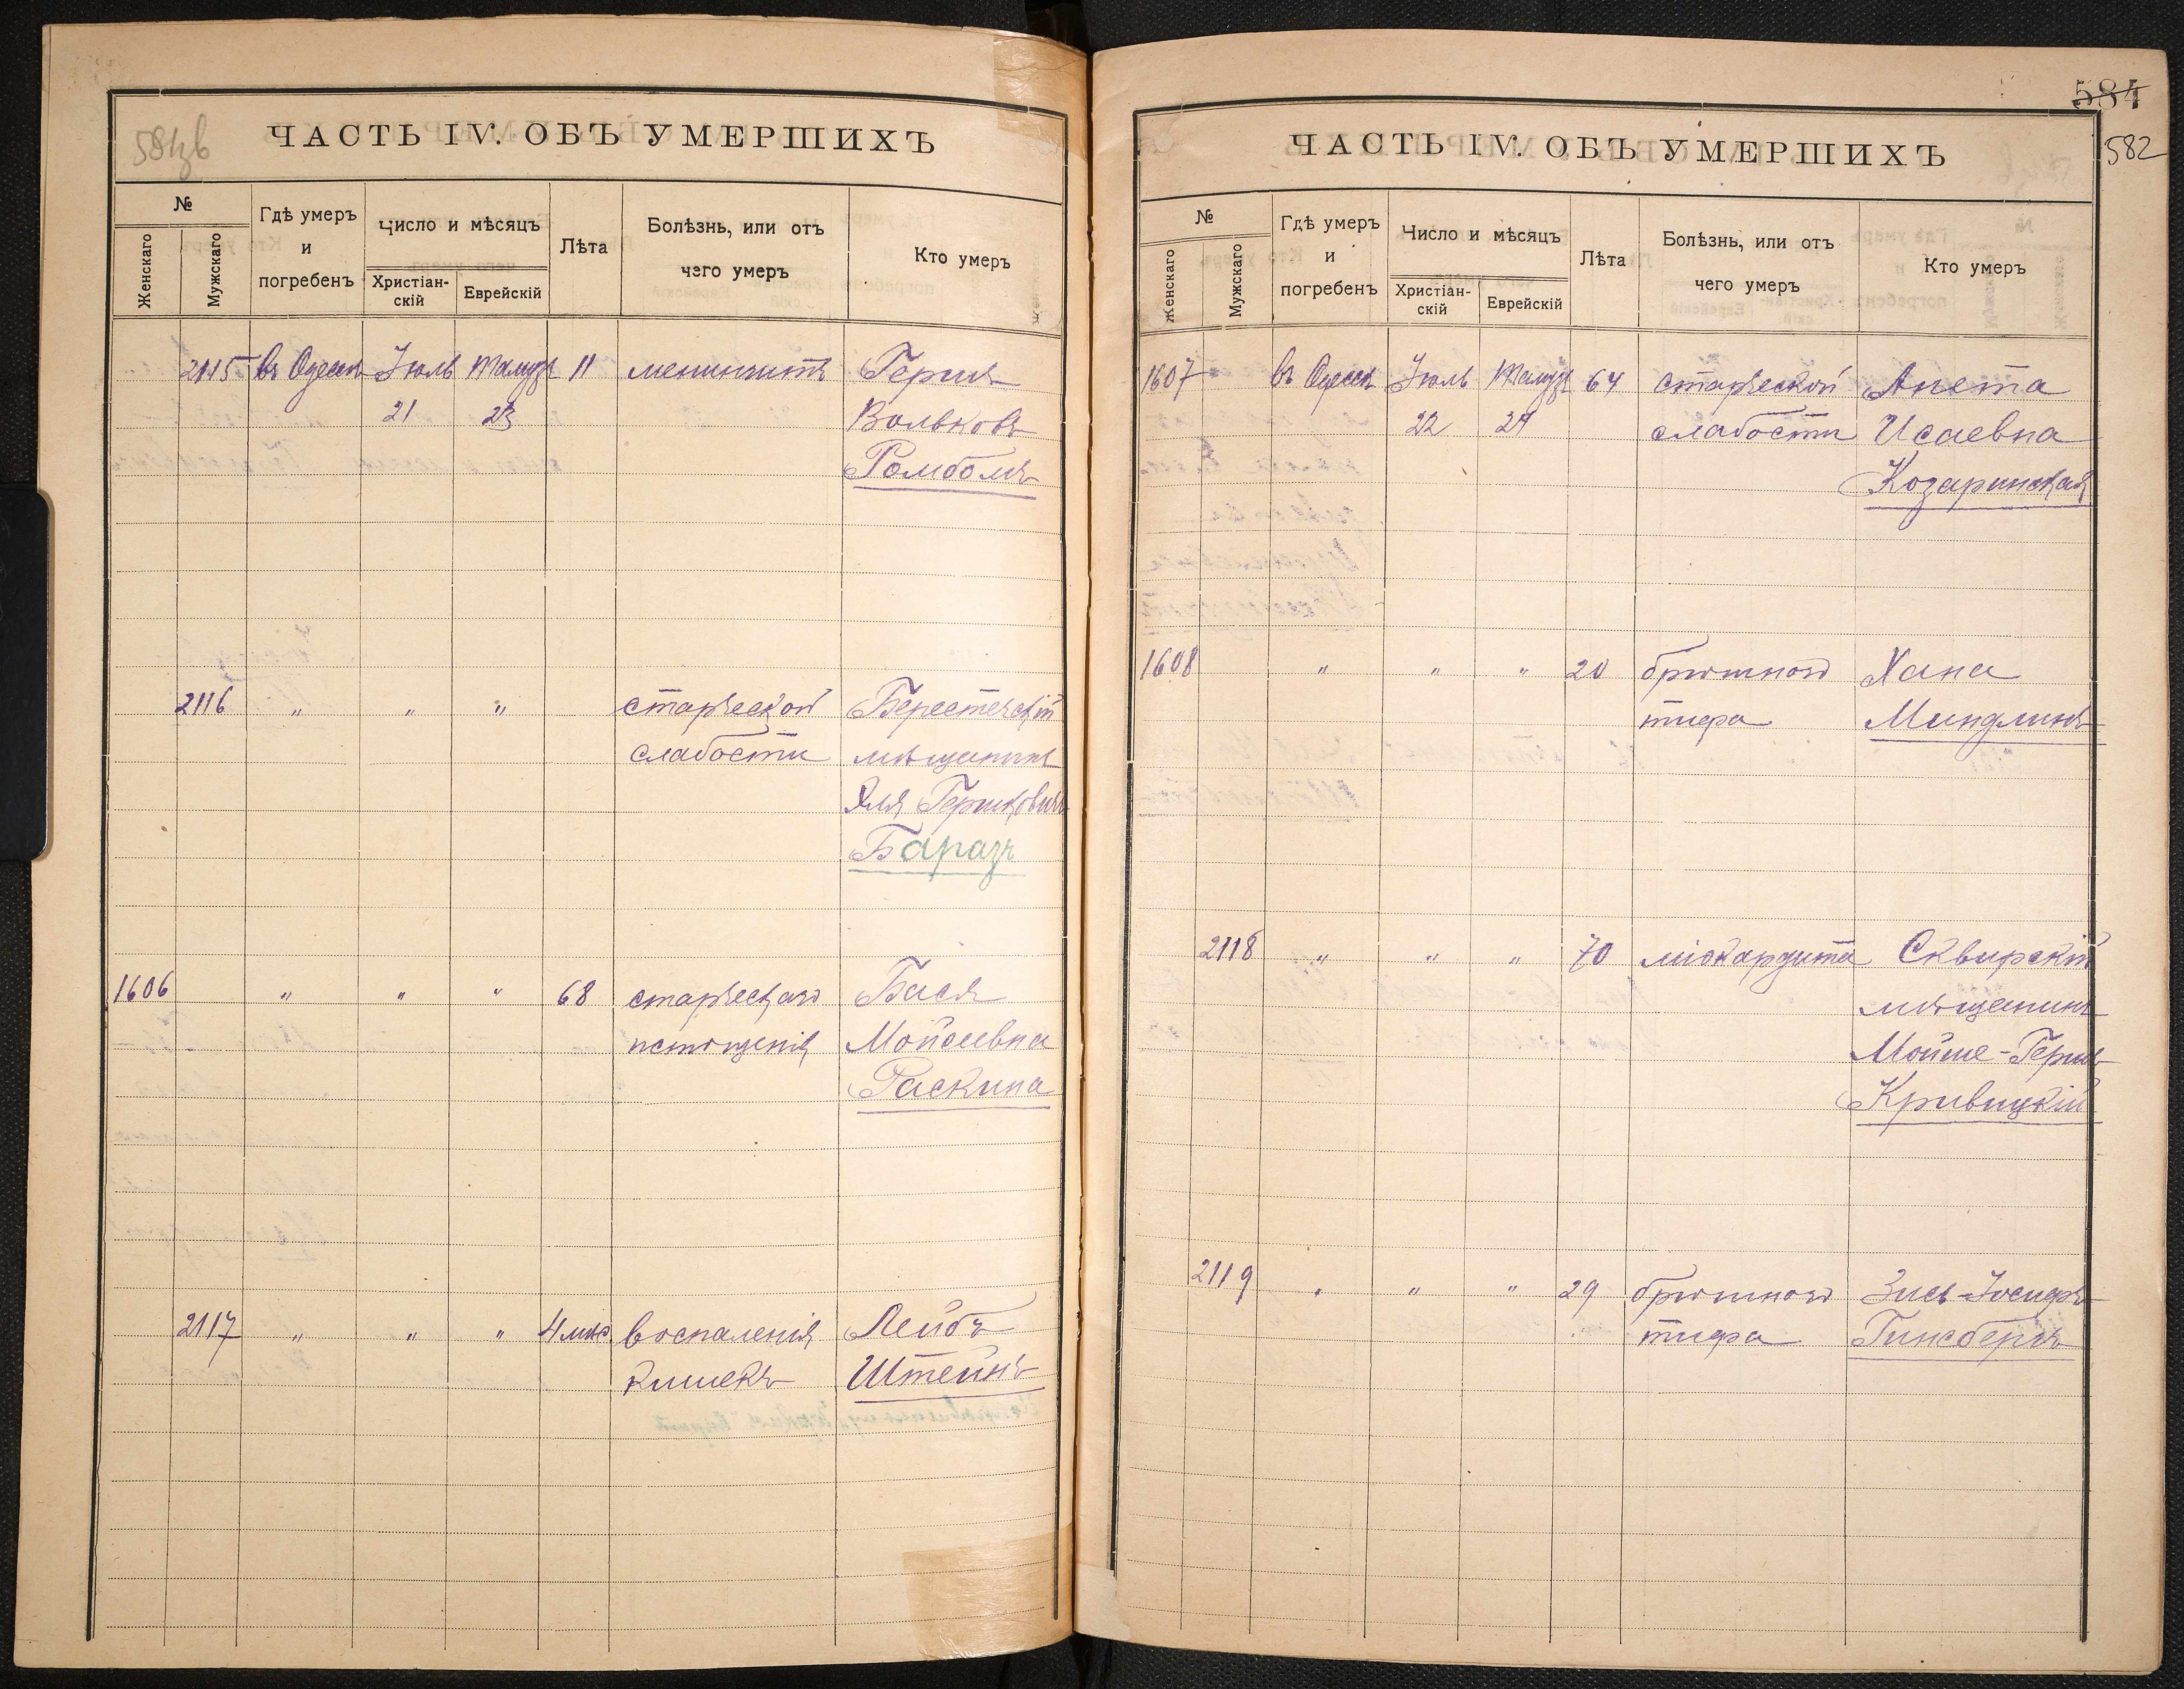 581зв
ЧАСТЬ IV. ОБЪ УМЕРШИХЪ
№
Женскаго
Мужскаго
Гдѣ умеръ
и
погребенъ
Число и мѣсяцъ
Христіан-
скій
Еврейскій
Лѣта
Болѣзнь, или отъ
чего умеръ
Кто умеръ
2115 въ Одессѣ Іюль Тамузъ 11 менингитъ Гершъ
21 23 Вольковъ
2116 " " " старческой Берестечскій
слабости мѣщанинъ
Эля Гершковичъ
Баразъ
1606 " " " 68 старческаго Бася
истощенія Мойсеевна
Раскина
2117 " " " 4 мѣс. воспаленія Лейбъ
кишекъ Штейнъ
584
582
ЧАСТЬ IV. ОБЪ УМЕРШИХЪ
№
Женскаго
Мужскаго
Гдѣ умеръ
и
погребенъ
Число и мѣсяцъ
Христіан-
скій
Еврейскій
Лѣта
Болѣзнь, или отъ
чего умеръ
Кто умеръ
1607 въ Одессѣ Іюль Тамузъ 64 старческой Анета
22 24 слабости Исаевна
Козаринская
1608 " " " 20 брюшного Хана
тифа Миндлинъ
2118 " " " 70 міокардита Сквирскій
мѣщанинъ
Мойше-Гершъ
Кривицкій
2119 " " " 29 брюшного Зись-Іосифъ
тифа Гинсбергъ